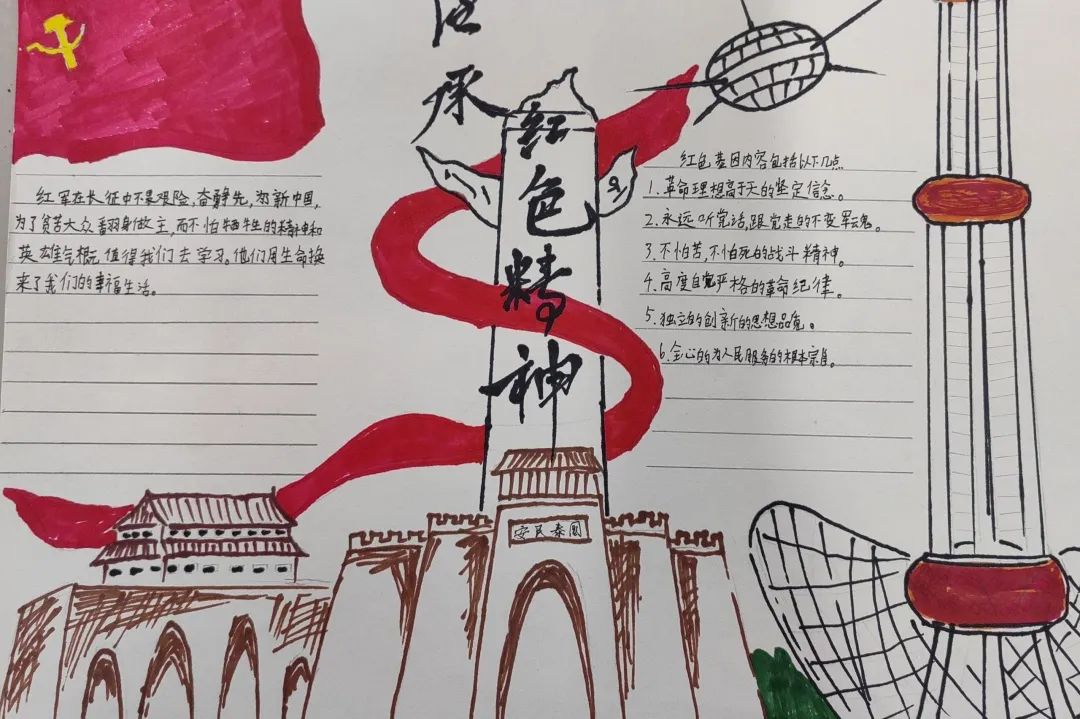 承
红色精神
红军在长征中不畏艰险,奋勇先,为新中国,
为了贫苦大众翻身做主,而不怕牺牲的精神和
英雄气概,值得我们去学习。他们用生命换
来了我们的幸福生活。
红色基因内容包括以下几点
1.革命理想高于天的坚定信念。
2.永远听党话,跟党走的不变军魂。
3.不怕苦,不怕死的战斗精神。
4.高度自觉严格的革命纪律。
5.独立的创新的思想品质。
6.全心的为人民服务的根本宗旨。
安民泰